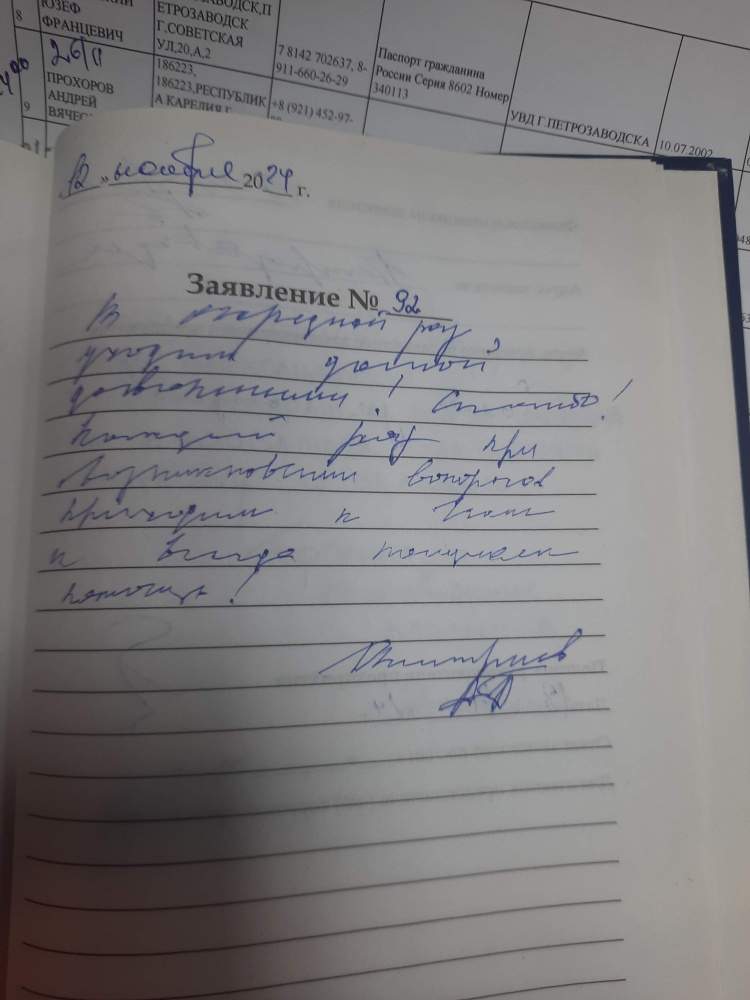 8
ЮЗЕФ
ФРАНЦЕВИЧ
ЕТРОЗАВОДСК
Г.СОВЕТСКАЯ
УЛ,20,А,2
7 8142 702637, 8-
911-660-26-29
Паспорт гражданина
России Серия 8602 Номер
340113
УВД Г.ПЕТРОЗАВОДСКА
10.07.2002
9
ПРОХОРОВ
АНДРЕЙ
186223,
186223,РЕСПУБЛИК
А КАРЕЛИЯ
+8 (921) 452-97-
12 » ноября 2024 г.
Заявление № 92
В очередной раз
уходим домой
довольными! Спасибо!
Каждый раз при
возникновении вопросов
приходим к Вам
и всегда получаем
помощь!
Дмитриев